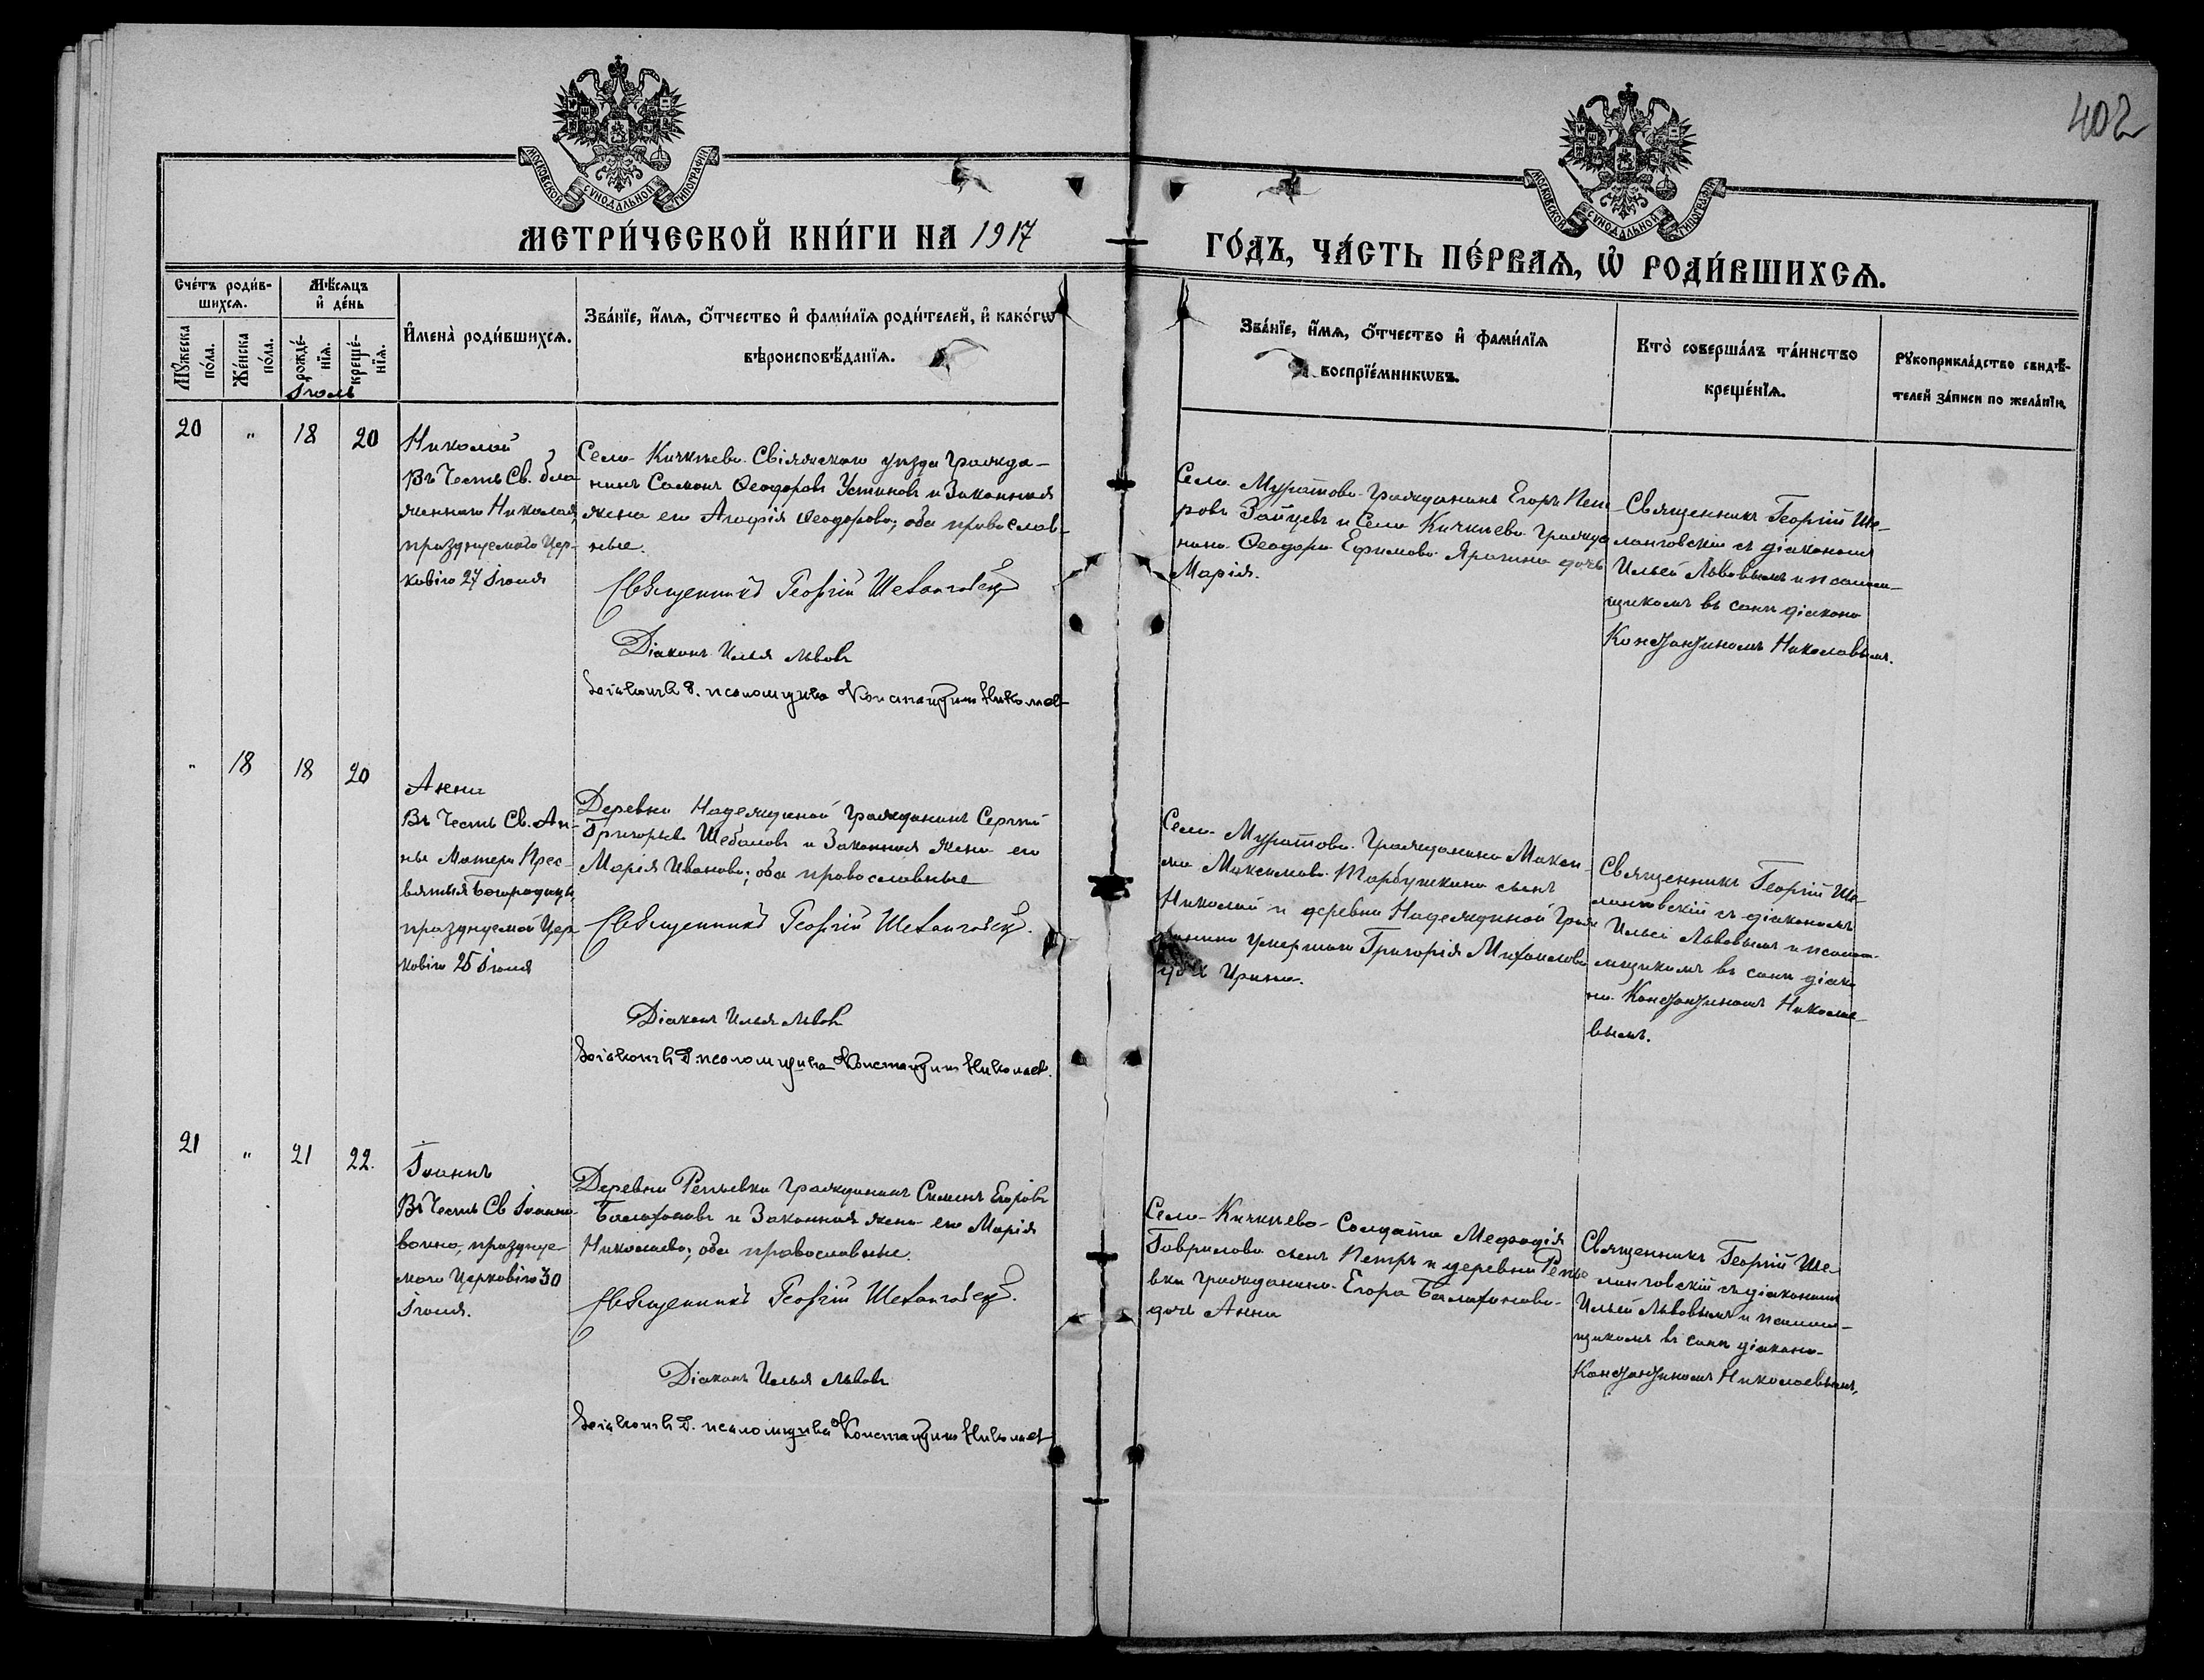 402
МОСКОВСКОЙ СѴНОДАЛЬНОЙ ТИПОГРАФІИ
МОСКОВСКОЙ СѴНОДАЛЬНОЙ ТИПОГРАФІИ
МЕТРИ́ЧЕСКОЙ КНИ́ГИ НА 1917
ГО́ДЪ, ЧА́СТЬ ПЕ́РВАѦ, Ѽ РОДИ́ВШИХСѦ.
Сче́тъ роди́в-
шихсѧ.
Мѣ́сѧцъ
и҆ де́нь
Мꙋ́жеска
по́ла.
Же́нска
по́ла.
рожде́-
нїѧ.
креще́-
нїѧ.
И҆мена̀ роди́вшихсѧ.
Зва́нїе, и҆́мѧ, ѻ҆́тчество и҆ фами́лїѧ роди́телей, и҆ како́гѡ
вѣроисповѣ́данїѧ.
Зва́нїе, и҆́мѧ, ѻ҆́тчество и҆ фами́лїѧ
воспрїе́мникѡвъ.
Кто̀ соверша́лъ та́инство
креще́нїѧ.
Рꙋкоприкла́дство свидѣ́-
телей за́писи по жела́нїю.
Іюль
20 " 18 20
Николай
Въ Честь Св. бла
женнаго Николая,
празднуемаго Цер-
ковію 27 Іюля
Села Кичкѣева Свіяжскаго уѣзда Гражда-
нинъ Симонъ Ѳеодоровъ Устиновъ и Законная
жена его Агафія Ѳеодорова; оба православ-
ные.
Священникъ Георгій
Діаконъ Илья Львовъ
псаломщика Константинъ Николаев
Села Муратова Гражданинъ Егоръ Пет
ровъ Зайцевъ и Села Кичкѣева Гражда
нина Ѳеодора Ефимова дочь
Марія.
Священникъ Георгій Ше-
лантовскій съ діакономъ
Ильей Львовымъ и псалом-
щикомъ въ санѣ діакона
Константиномъ Николаевымъ.
" 18 18 20
Анна
Въ Честь Св. Ан-
ны Матери Прес-
вятыя Богородицы,
празднуемой Цер
ковію 25 Іюля
Деревни Надеждиной Гражданинъ Сергѣй
Григорьевъ Шебаловъ и Законная жена его
Марія Иванова; оба православные
Священникъ Георгій
Діаконъ Илья Львовъ
псаломщика Константинъ Николаев.
Села Муратова Гражданина Макси-
ма Максимова Тарбушкина сынъ
Николай и деревни Надеждиной Граж
данина умершаго Григорія Михаилова
дочь Ирина.
Священникъ Георгій Ше-
лантовскій съ діакономъ
Ильей Львовымъ и псало-
мщикомъ въ санѣ діако
на Константиномъ Николае-
вымъ.
21 " 21 22.
Іоаннъ
Въ Честь Св Іоанна
воина, празднуе-
маго Церковію 30
Іюля.
Деревни Репьевки Гражданинъ Симонъ Егоровъ
Балахоновъ и Законная жена его Марія
Николаева; оба православные.
Священникъ Георгій
Діаконъ Илья Львовъ
псаломщика Константинъ Николаев
Села Кичкѣева Солдата Мефодія
Гаврилова сынъ Петръ и деревни Репье
вки Гражданина Егора Балахонова
дочь Анна
Священникъ Георгій Ше-
лантовскій съ діакономъ
Ильей Львовымъ и псалом-
щикомъ въ санѣ діакона
Константиномъ Николаевымъ,